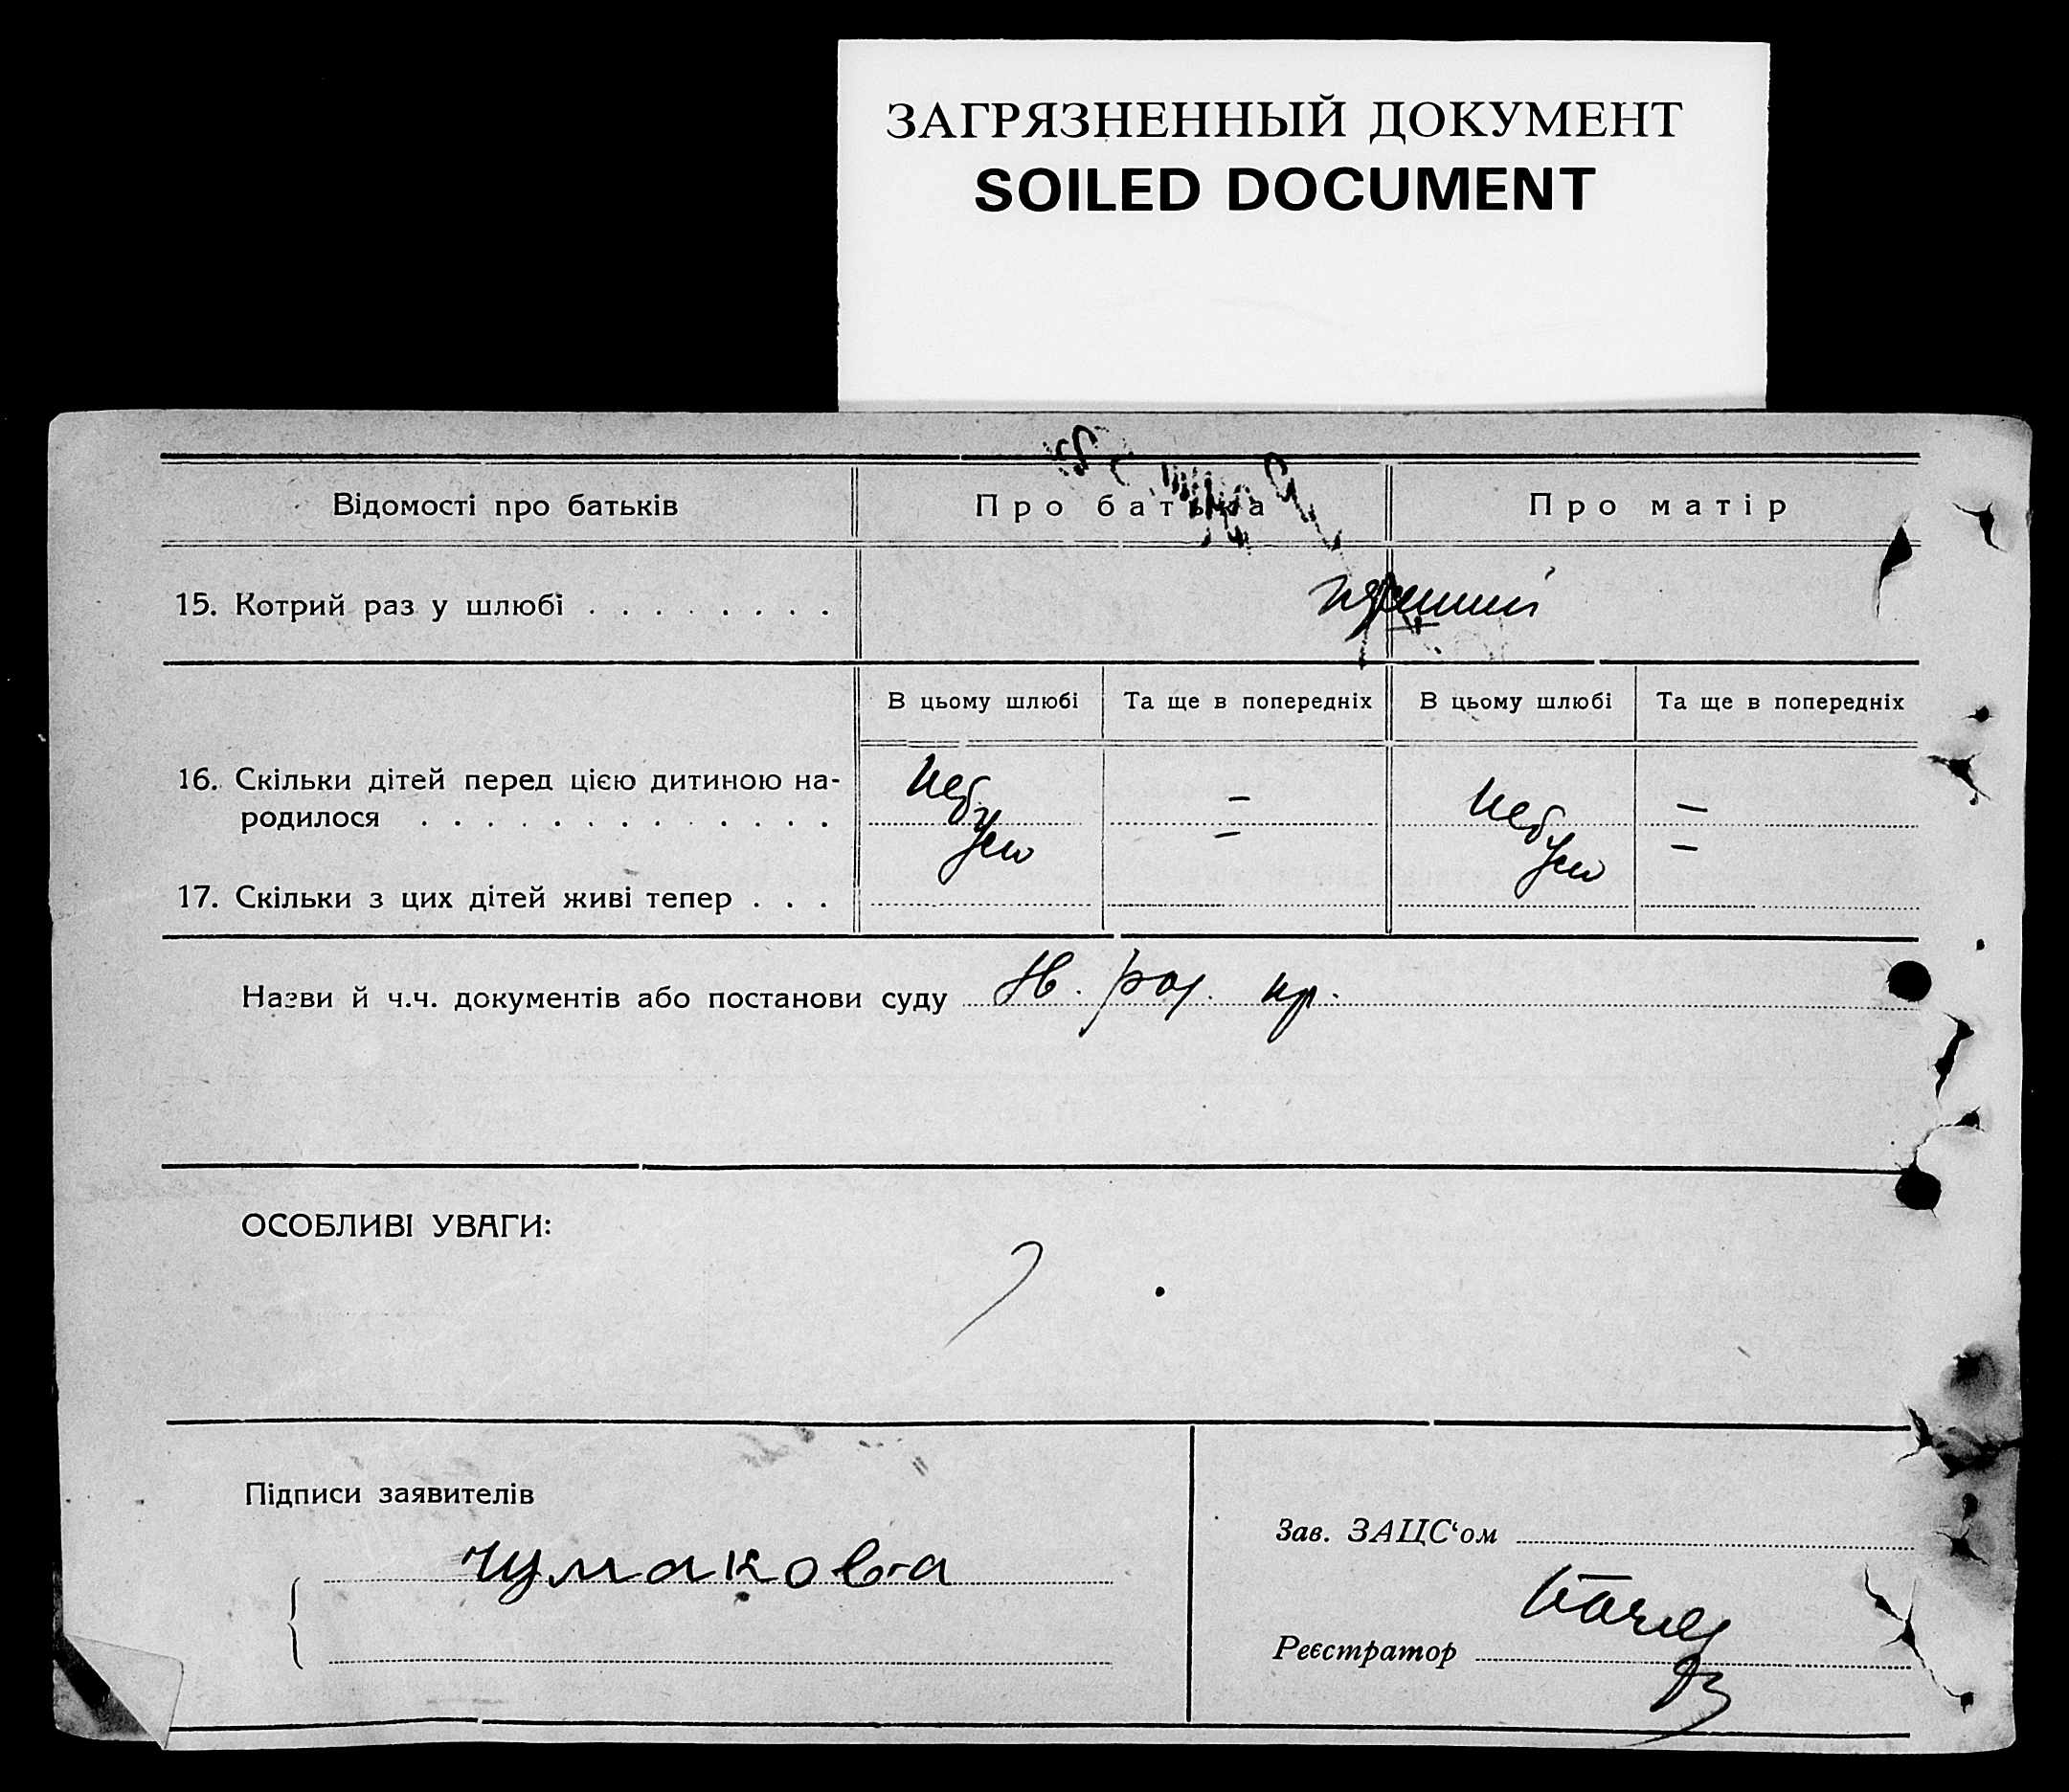 ЗАГРЯЗНЕННЫЙ ДОКУМЕНТ
SOILED DOCUMENT
Відомості про батьків
Про батька
Про матір
15. Котрий раз у шлюбі . . . . . . . .
В цьому шлюбі
Та ще в попередніх
В цьому шлюбі
Та ще в попередніх
16. Скільки дітей перед цією дитиною на-
родилося . . . . . . . . . . . . .
–
–
17. Скільки з цих дітей живі тепер . . .
–
–
Назви й ч.ч. документів або постанови суду
ОСОБЛИВІ УВАГИ:
Підписи заявителів
Чумакова
Зав. ЗАЦС‘ом
Реєстратор